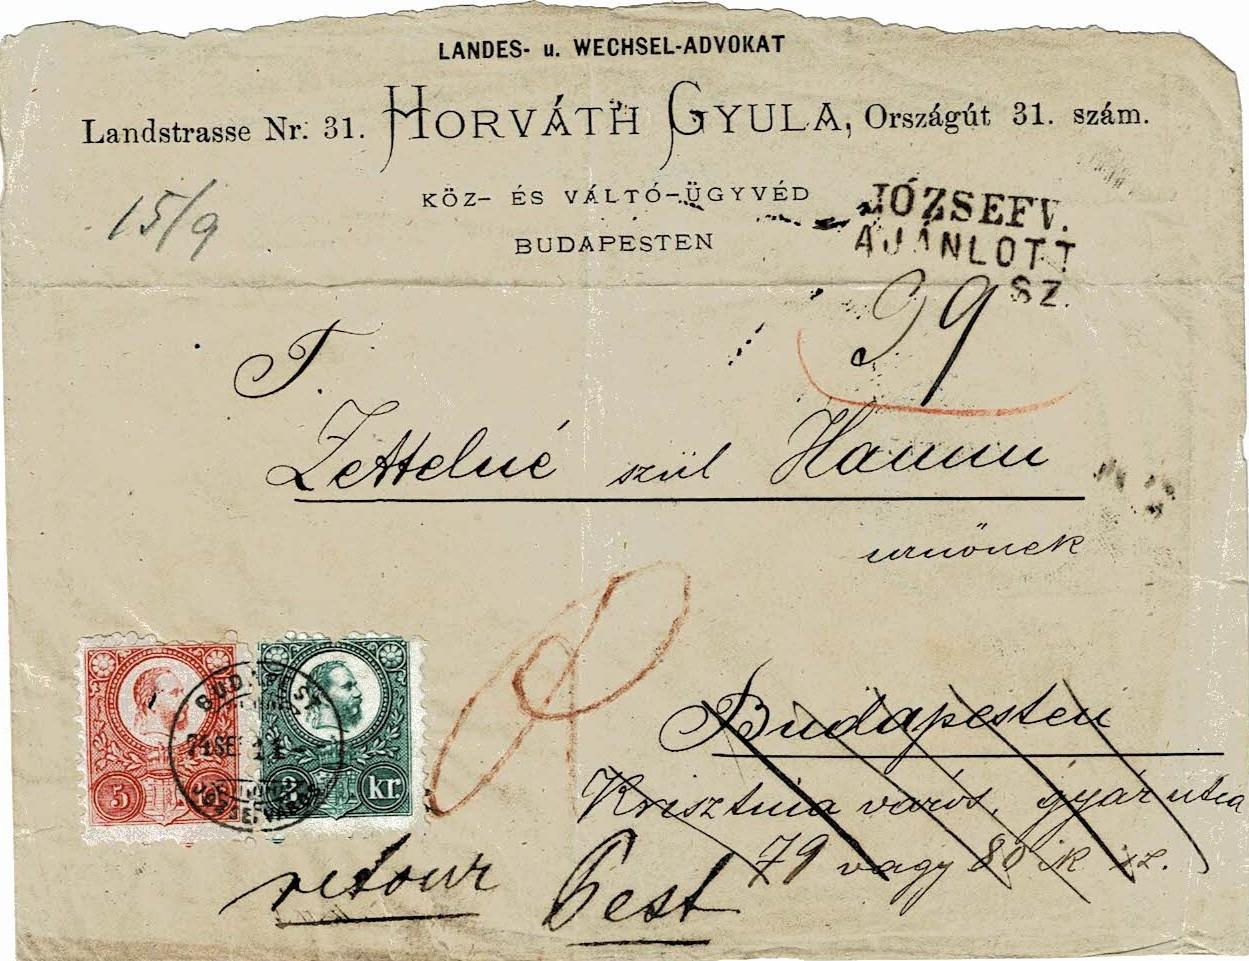 LANDES- u. WECHSEL-ADVOKAT
Landstrasse Nr. 31. HORVÁTH GYULA, Országút 31. szám.
KÖZ- ÉS VÁLTÓ-ÜGYVÉD
BUDAPESTEN
15/9
JÓZSEFV.
AJÁNLOTT
SZ.
39
T.
Zettelné szül Hamm
urnőnek
BUDAPEST
74 SEP 11
5 kr
3 kr
Budapesten
Krisztina város, gyár utca
79 vagy 80 ik sz.
retour Pest